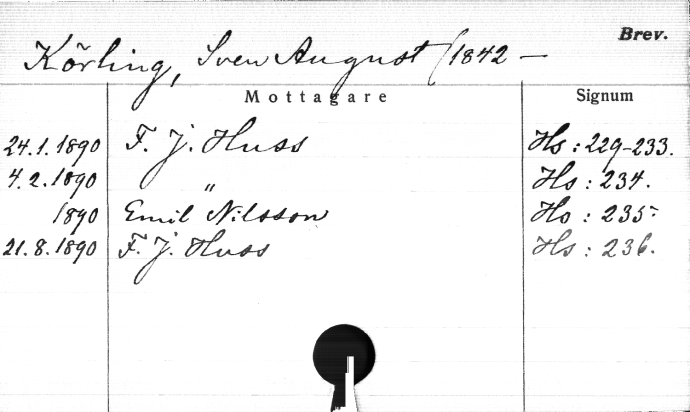 Brev.
Körling, Sven August (1842 —
Mottagare Signum
24.1.1890 F. J. Huss Hs: 229-233.
4.2.1890 " Hs: 234.
1890 Emil Nilsson Hs: 235.
21.8.1890 F. J. Huss Hs: 236.